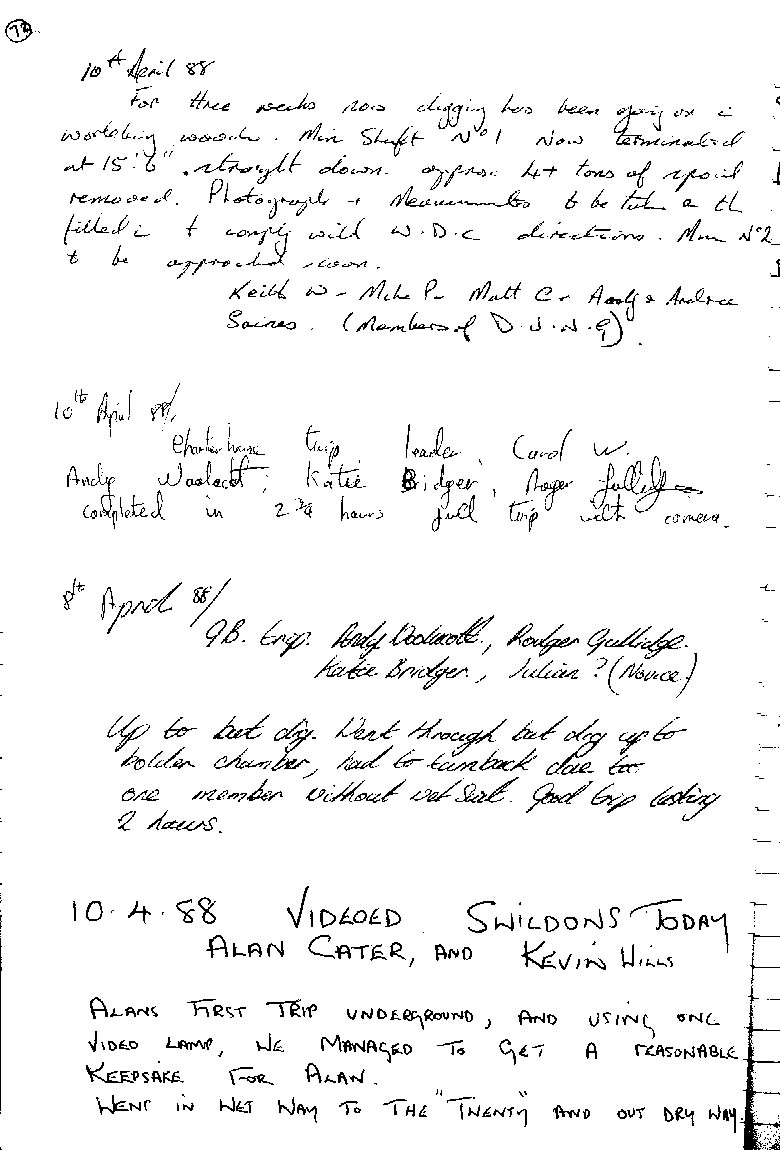 10th April 88
For three weeks now digging has been going on i
worlebury woods. Min Shaft No1 Now terminated
at 15'6" straight down. approx 4+ tons of spoil
removed. Photographs + Measurements to be taken a th
filled i t comply with W.D.C directions. Min No2
t be approached soon.
Keith W - Mike P - Matt C - Andy & Andrea
Saines. (Members of D.J.N.G).
10th April 88/
Charterhouse trip leader, Carol W.
Andy Woolacott, Katie Bridger, Roger
completed in 2 3/4 hours full trip with camera.
8th April 88/
GB. trip. Andy Woolacott, Rodger Gullidge.
Katie Bridger, Julian ? (Novice)
Up to bat dig. Went through bat dig up to
bolder chamber, had to turnback due to
one member without wet suit. Good trip lasting
2 hours.
10.4.88 VIDEOED SWILDONS TODAY
ALAN CATER, AND KEVIN HILLS
ALANS FIRST TRIP UNDERGROUND, AND USING ONE
VIDEO LAMP, WE MANAGED TO GET A REASONABLE
KEEPSAKE FOR ALAN.
WENT IN WET WAY TO THE "TWENTY" AND OUT DRY WAY.